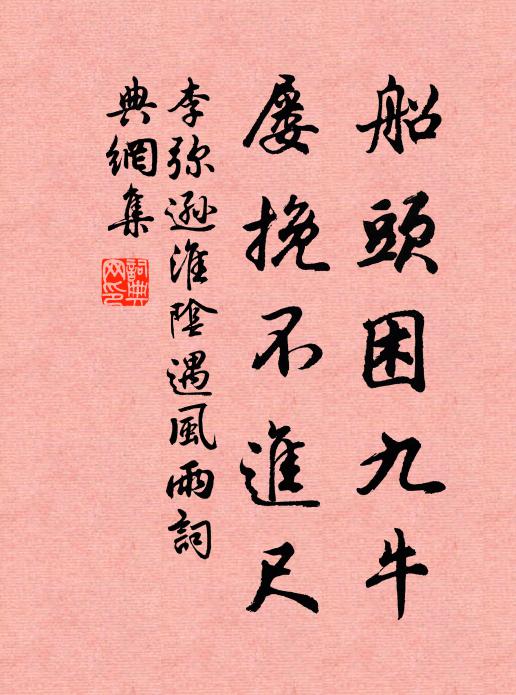 船頭困九牛
屡挽不進尺
李弥遜淮陰遇風雨詞
典網集
詞典
网印